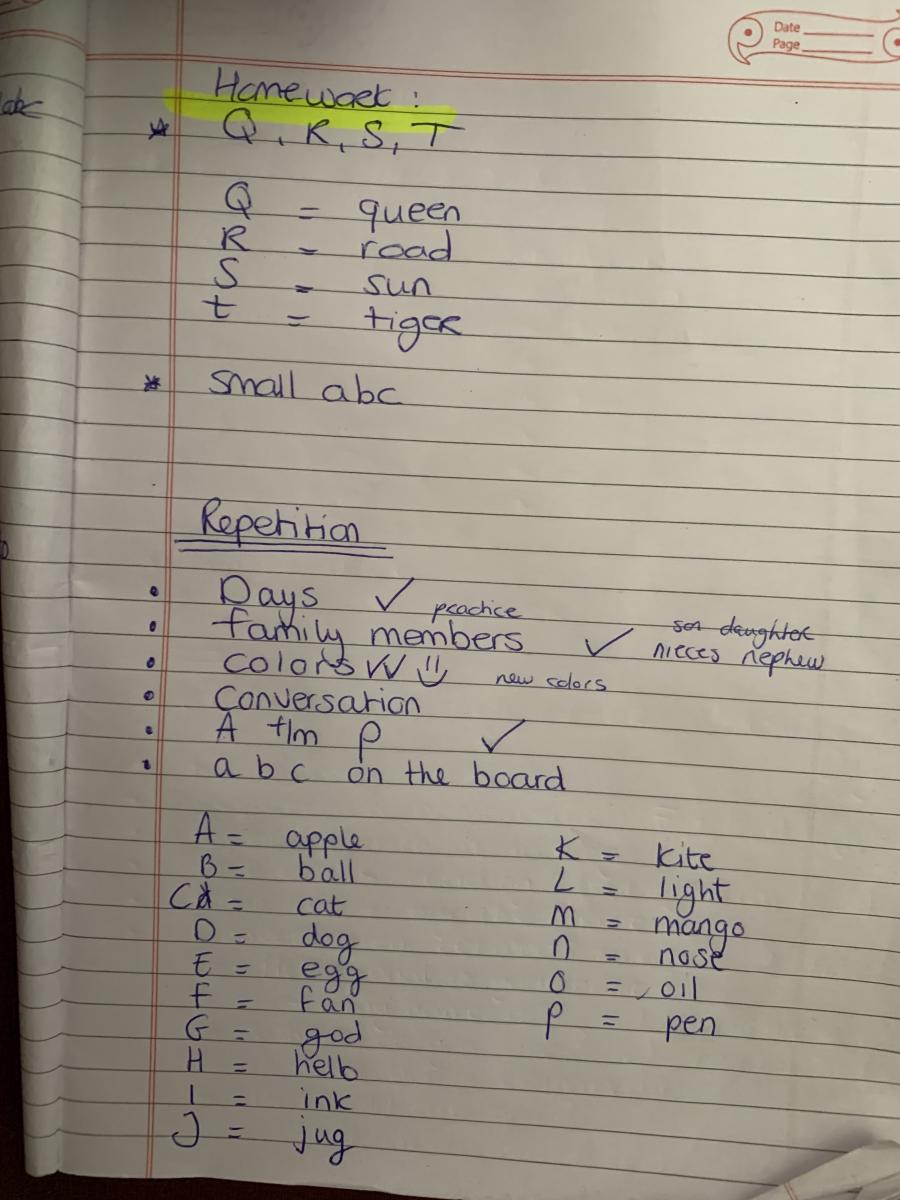 Date
Page
abc
Homework :
* Q, R, S, T
Q = queen
R = road
S = sun
t = tiger
* small abc
Repetition
• Days ✓ practice
• family members ✓ son daughter
nieces nephew
• colors ✓✓ new colors
• Conversation
• A t/m P ✓
• a b c on the board
A = apple
B = ball
C = cat
D = dog
E = egg
F = fan
G = god
H = hello
I = ink
J = jug
K = kite
L = light
M = mango
n = nose
O = oil
P = pen